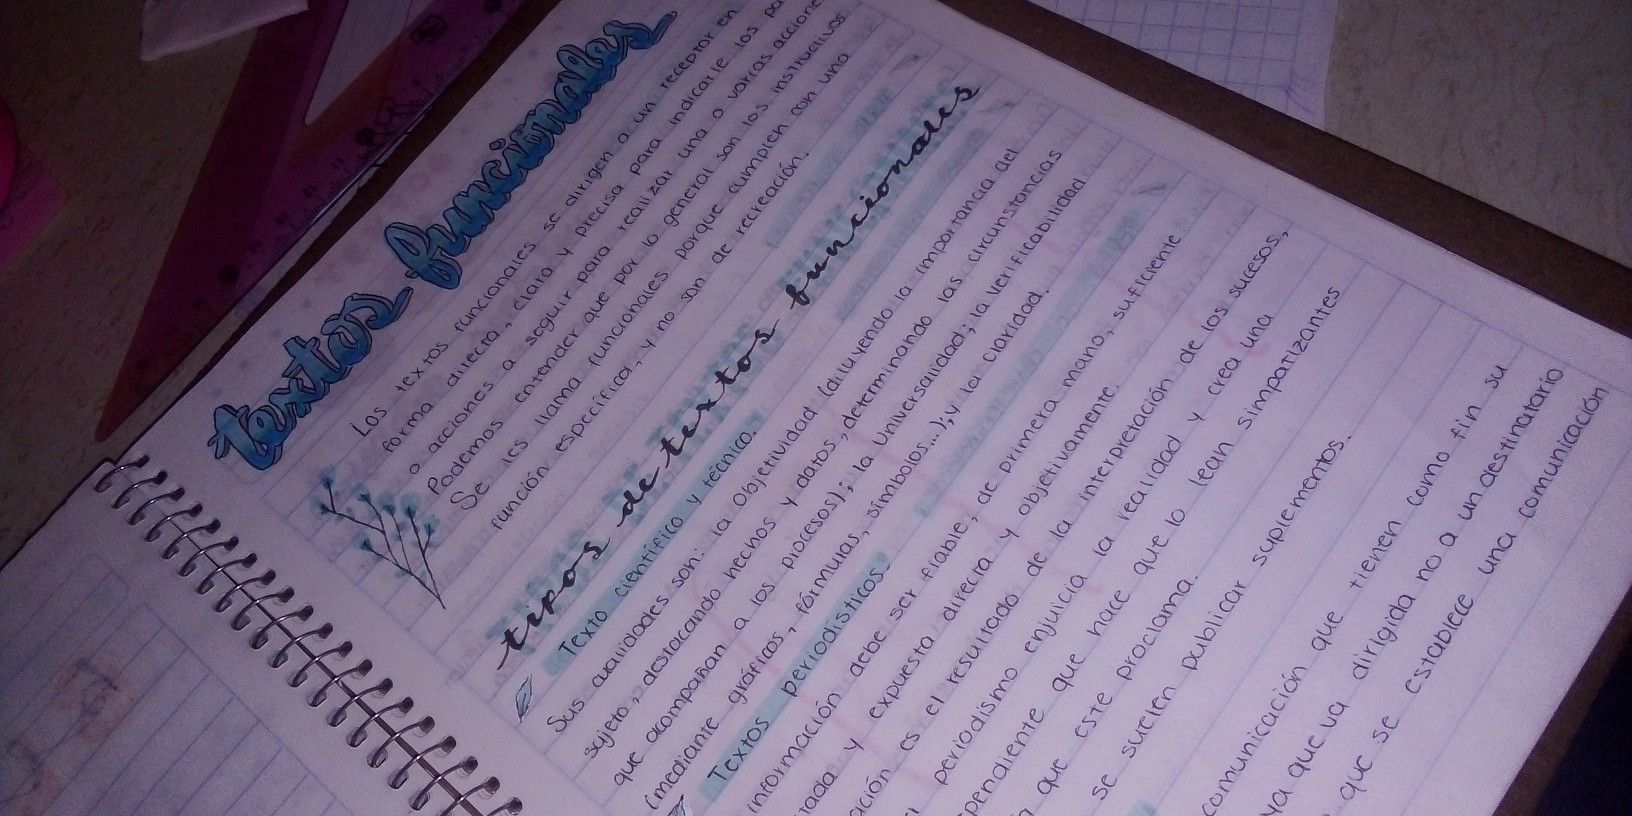 textos funcionales
Los textos funcionales se dirigen a un receptor en
forma directa, clara y precisa para indicarle los
o acciones a seguir para realizar una o varias
Podemos entender que por lo general son los instructivos
Se les llama funcionales porque cumplen con una
función específica, y no son de recreación.
tipos de textos funcionales
Texto científico y técnico.
Sus cualidades son: la Objetividad (diluyendo la importancia del
sujeto, destacando hechos y datos, determinando las circunstancias
que acompañan a los procesos); la Universalidad; la verificabilidad
(mediante gráficos, fórmulas, símbolos...); y la claridad.
Textos periodísticos.
información debe ser fiable, de primera mano, suficiente
y expuesta directa y objetivamente.
es el resultado de la interpretación de los sucesos,
periodismo enjuicia la realidad y crea una
que hace que lo lean simpatizantes
que este proclama.
se suelen publicar suplementos.
comunicación que tienen como fin su
ya que va dirigida no a un destinatario
que se establece una comunicación